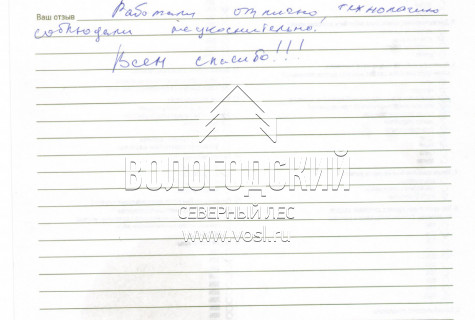 Ваш отзыв Работали отлично, технологию
соблюдали неукоснительно.
Всем спасибо!!!
ВОЛОГОДСКИЙ
СЕВЕРНЫЙ ЛЕС
www.vosl.ru